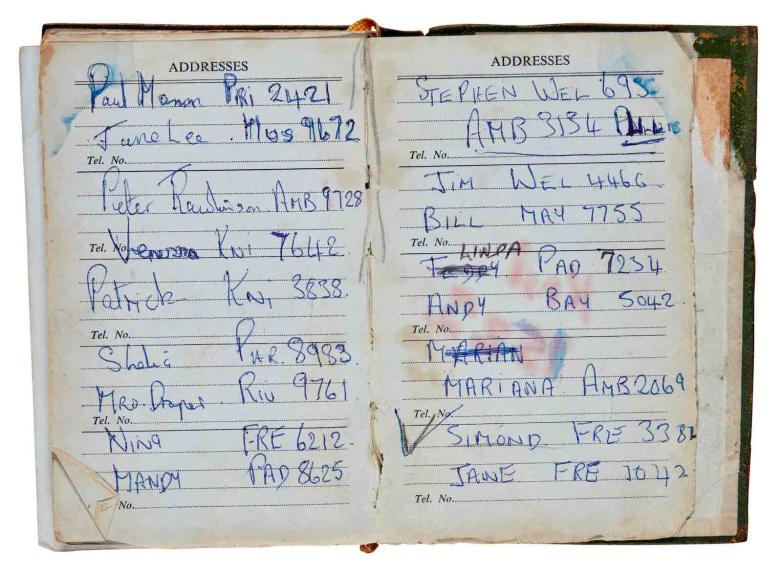 ADDRESSES
Paul Mamon PRI 2421
June Lee. Mus 9672
Tel. No.
Pieter Rawlinson AMB 9728
Tel. No. Vanessa KNI 7642
Patrick KNI 3838.
Tel. No.
PAR. 8983
Mrs. Draper RIV 9761
Tel. No.
Nina FRE 6212.
MANDY PAD 8625
No.
ADDRESSES
STEPHEN WEL 695
AMB 3134
Tel. No.
JIM WEL 4466.
BILL MAY 7755
Tel. No.
LINDA
PAD 7234
ANDY BAY 5042.
Tel. No.
MARIAN
MARIANA AMB 2069
Tel. No.
SIMOND FRE 3381
JANE FRE 1042
Tel. No.